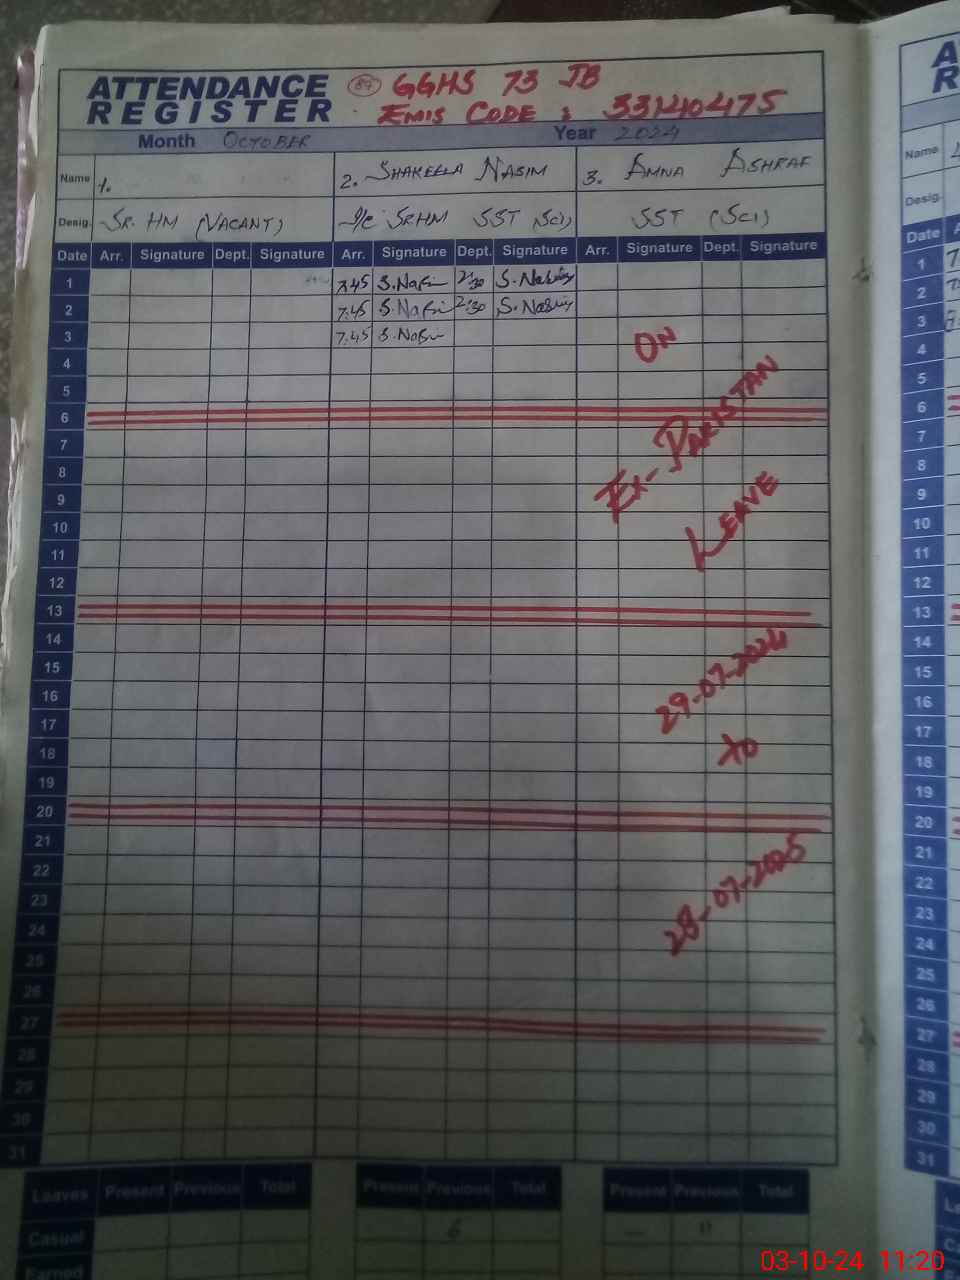 ATTENDANCE REGISTER
89 GGHS 73 JB
EMIS CODE : 33140475
Month OCTOBER Year 2024
Name 1. 2. SHAKEELA NASIM 3. AMNA ASHRAF
Desig. SR. HM (VACANT) I/C SRHM SST (SCI) SST (SCI)
Date Arr. Signature Dept. Signature Arr. Signature Dept. Signature Arr. Signature Dept. Signature
1 7:45 S.Nasim 2:30 S.Nasim
2 7:45 S.Nasim 2:30 S.Nasim
3 7:45 S.Nasim
4
5
6
7
8
9
10
11
12
13
14
15
16
17
18
19
20
21
22
23
24
25
26
27
28
29
30
31
ON
EX-PAKISTAN
LEAVE
29-07-2024
to
28-07-2025
Leaves Present Previous Total Present Previous Total Present Previous Total
Casual 6 11
Earned
A
R
Name
Desig.
Date A
1 7
2 7
3
4
5
6
7
8
9
10
11
12
13
14
15
16
17
18
19
20
21
22
23
24
25
26
27
28
29
30
31
Le
Ca
03-10-24 11:20